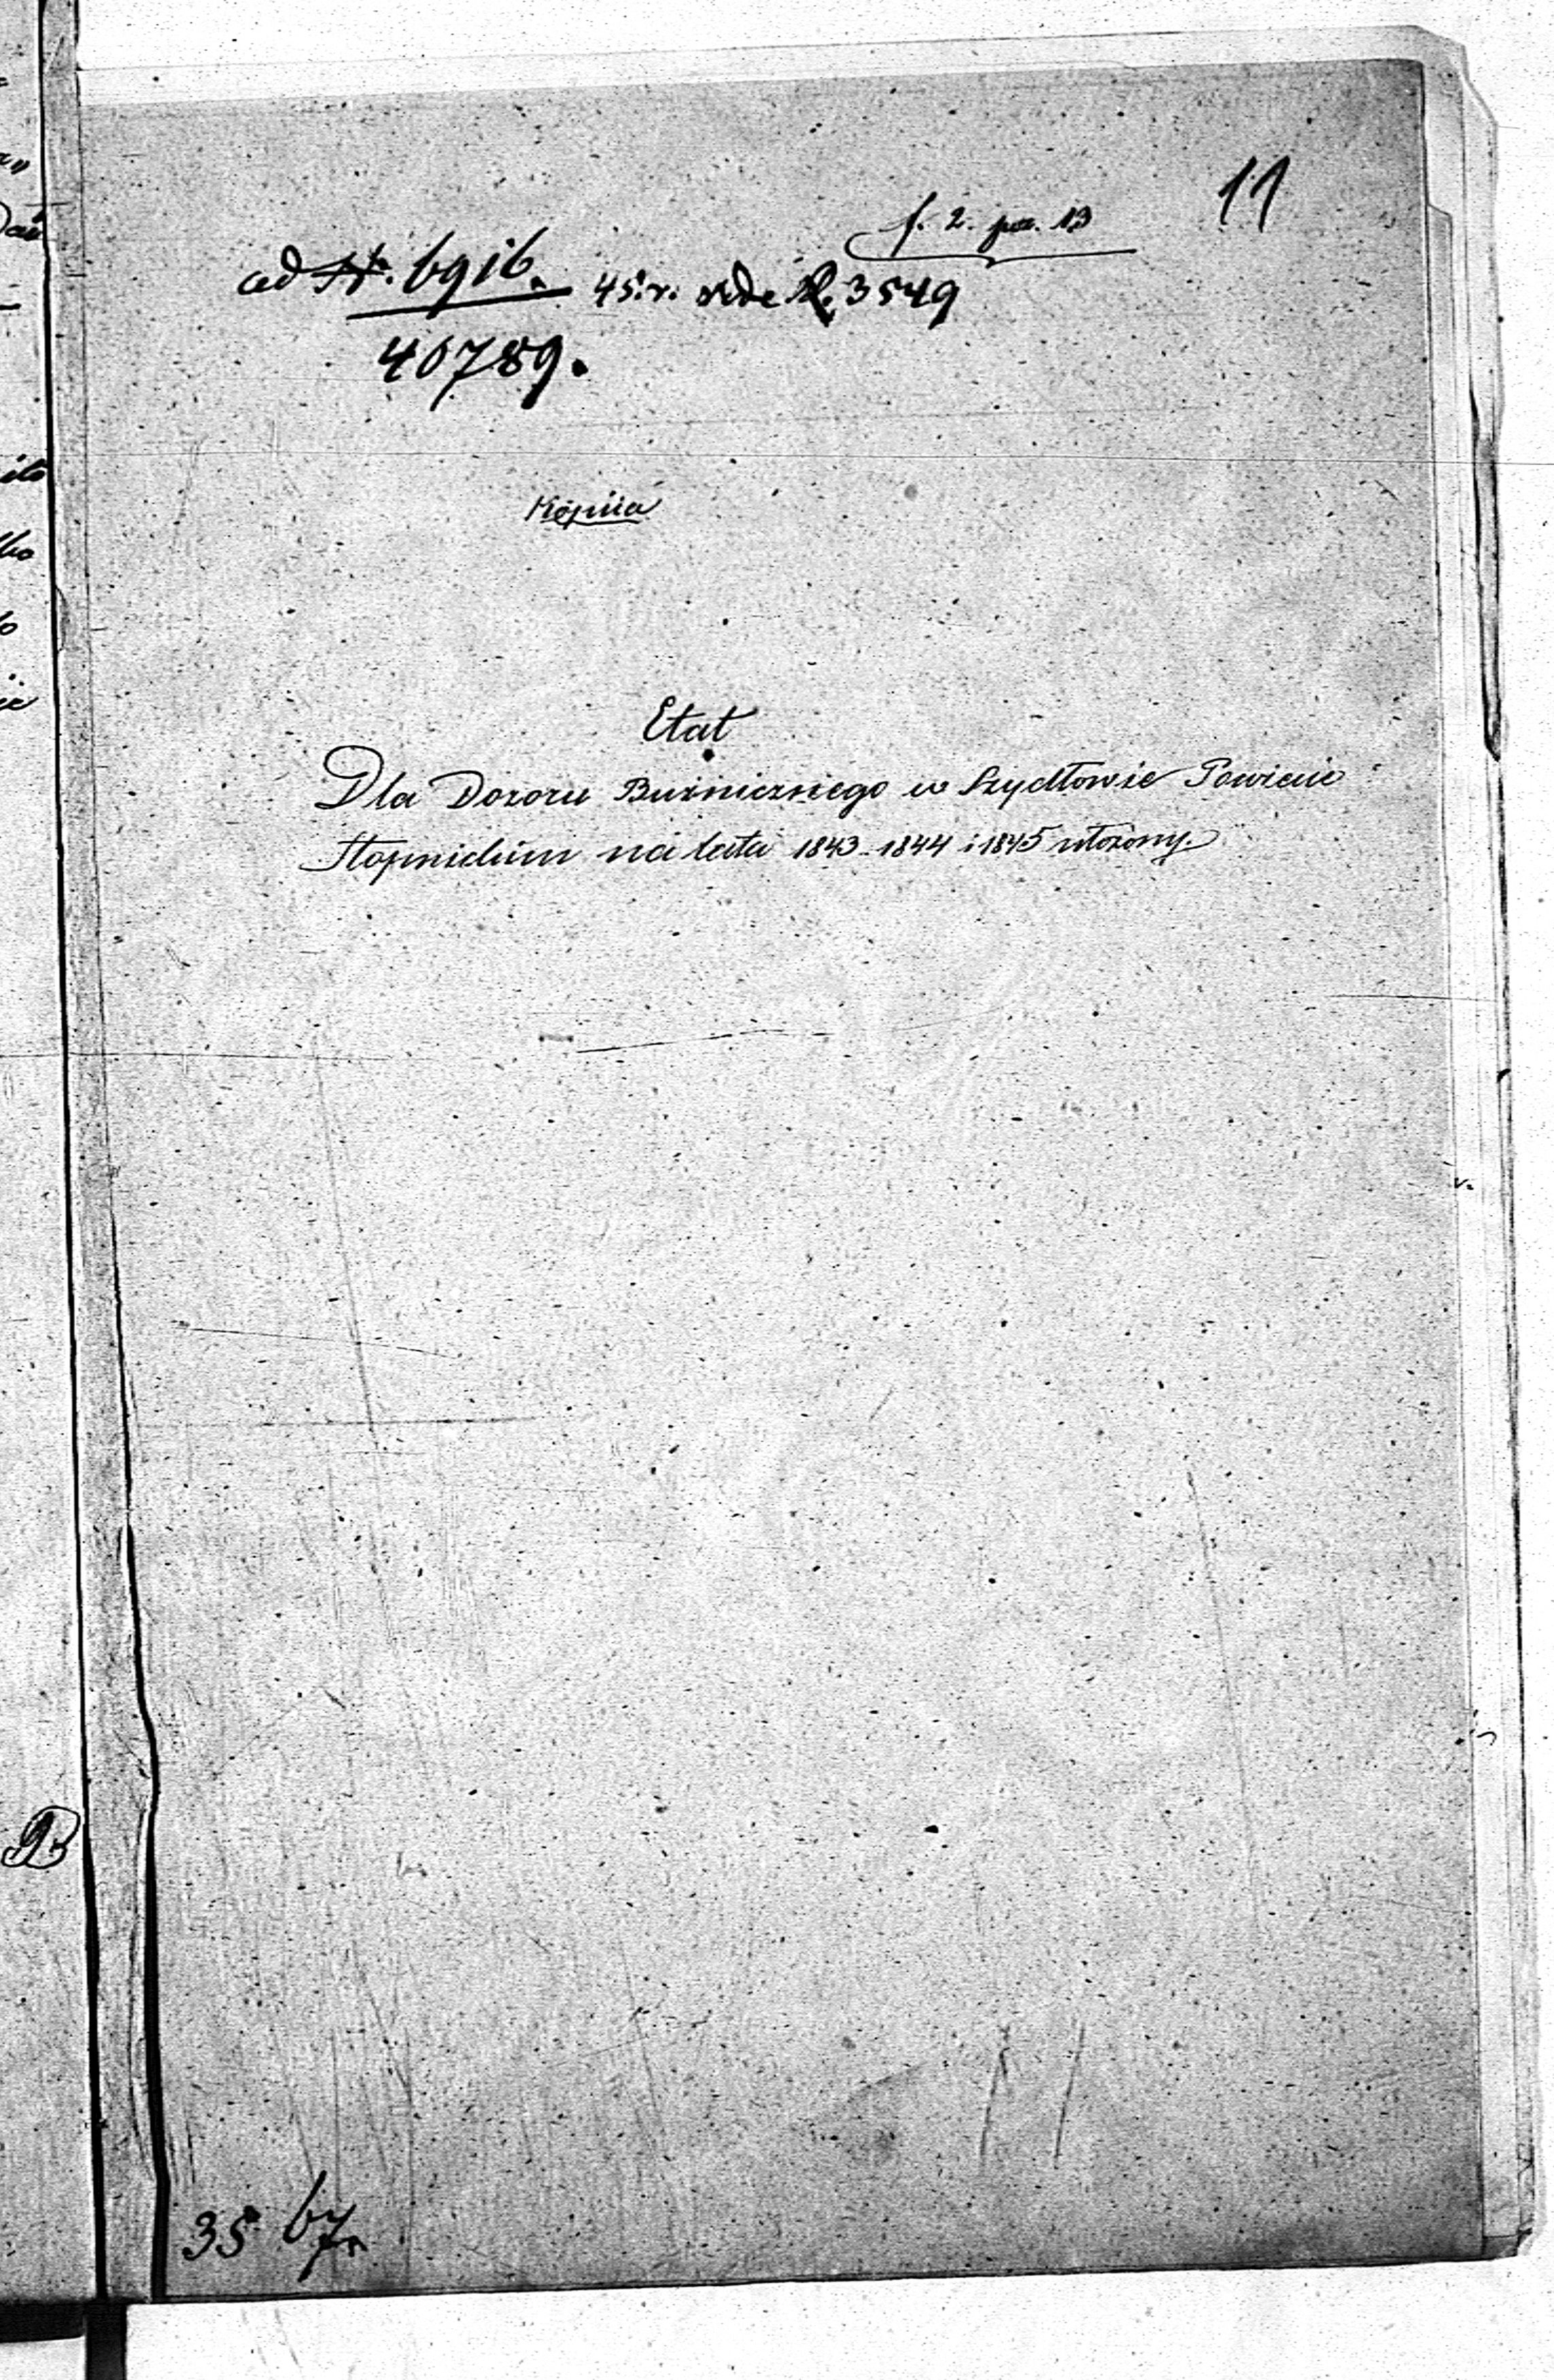 11
f. 2. poz. 13
ad N. 6916. 45. r. vide N. 3549
40789.
Kopiia
Etat
Dla Dozoru Bużniczego w Szydłowie Powiecie
Stopnickim na lata 1843. 1844 i 1845 ułożony.
35